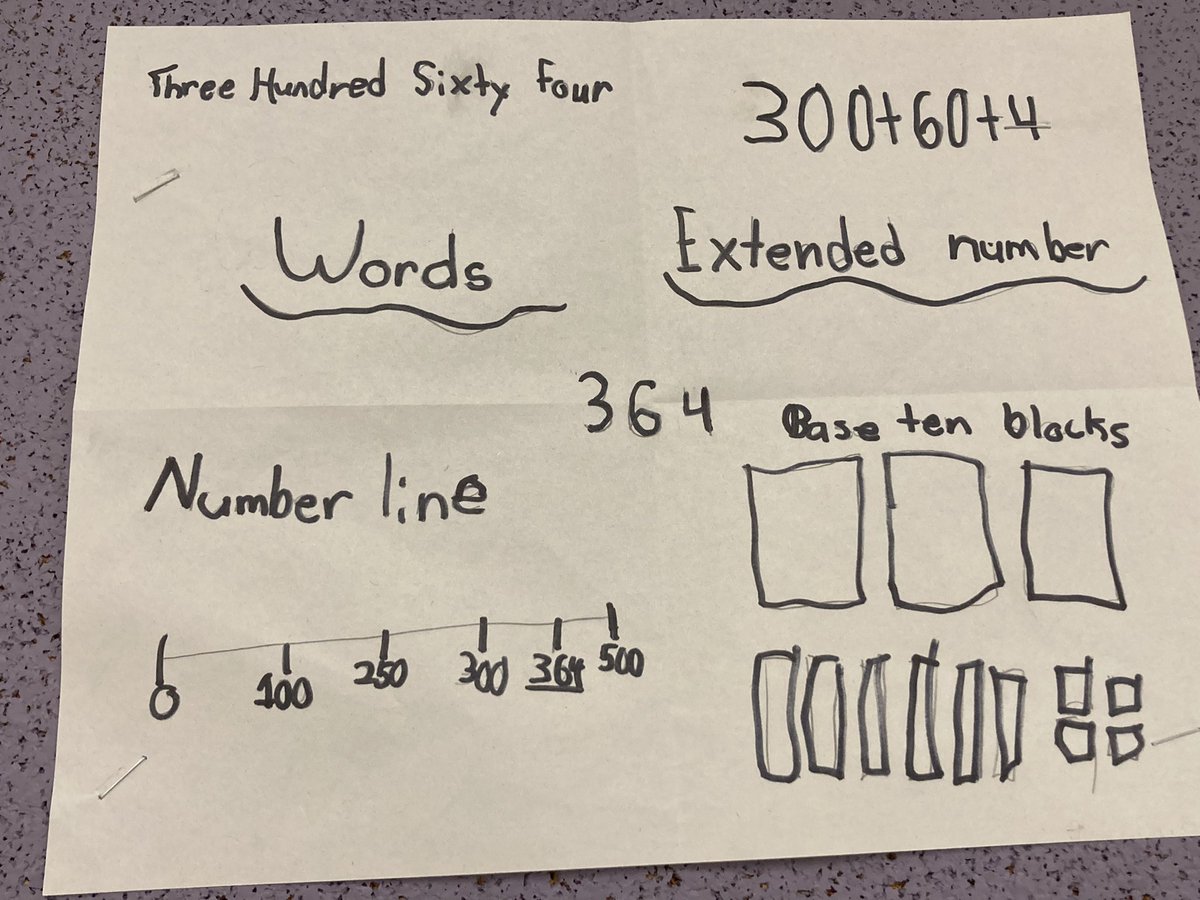 Three Hundred Sixty Four
300+60+4
Words
Extended number
364
Base ten blocks
Number line
0 100 250 300 364 500